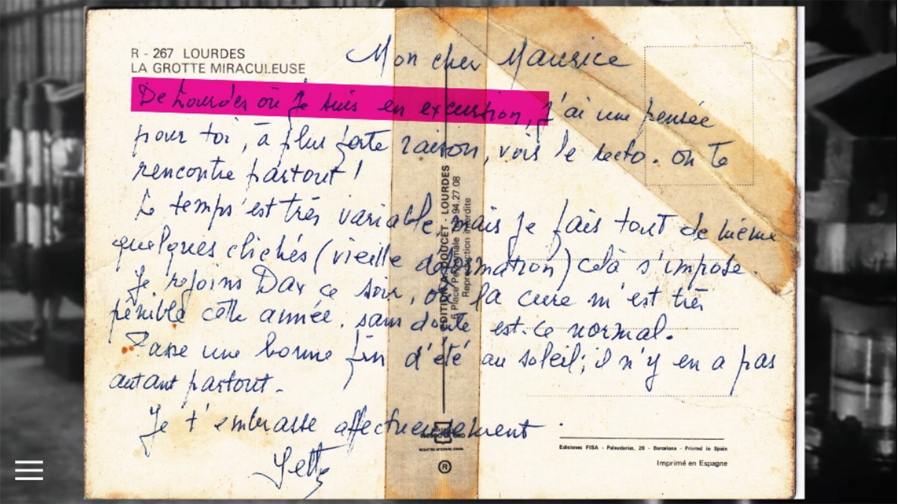 R - 267 LOURDES
LA GROTTE MIRACULEUSE
Mon cher Maurice
De Lourdes où je suis en excursion, j'ai une pensée
pour toi, à plus forte raison, vois le recto. on te
rencontre partout !
Le temps est très variable, mais je fais tout de même
quelques clichés (vieille déformation) celà s'impose
Je rejoins Dax ce soir, où la cure m'est très
pénible cette année. sans doute est-ce normal.
Passe une bonne fin d'été au soleil; il n'y en a pas
autant partout.
Je t'embrasse affectueusement.
EDITION A. DOUCET - LOURDES
6 Place 94.27.08
Reproduction interdite
Ediciones FISA - Palaudarias, 26 - Barcelona - Printed in Spain
Imprimé en Espagne
®